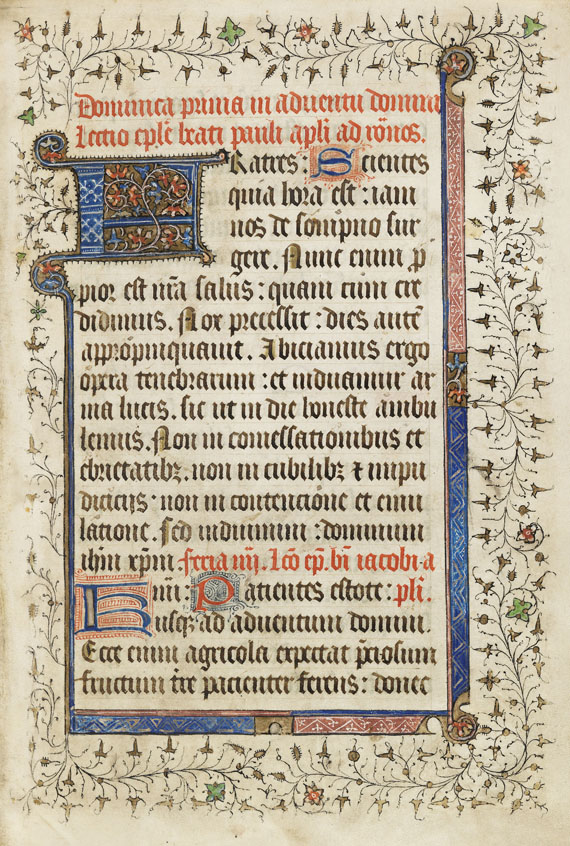 Dominica prima in aduentu domini
Lectio eple beati pauli apli ad rōnos.
FRatres: Scientes
quia hora est: iam
nos de sompno sur
gere. Nunc enim p̄
pior est nr̄a salus: quam cum cre
didimus. Nox precessit: dies autē
appropinquauit. Abiciamus ergo
opera tenebrarum: et induamur ar
ma lucis. sic ut in die honeste ambu
lemus. Non in comessationibus et
ebrietatibꝫ. non in cubilibꝫ ⁊ inpu
diciciis. non in contencione et emu
latione. Sed induimini: dominum
ihm xpm. feria iiij. Lcō ep. bī iacobi a
Hnī: Patientes estote: pli.
usqꝫ ad aduentum domini.
Ecce enim agricola expectat p̄ciosum
fructum tre pacienter ferens: donec